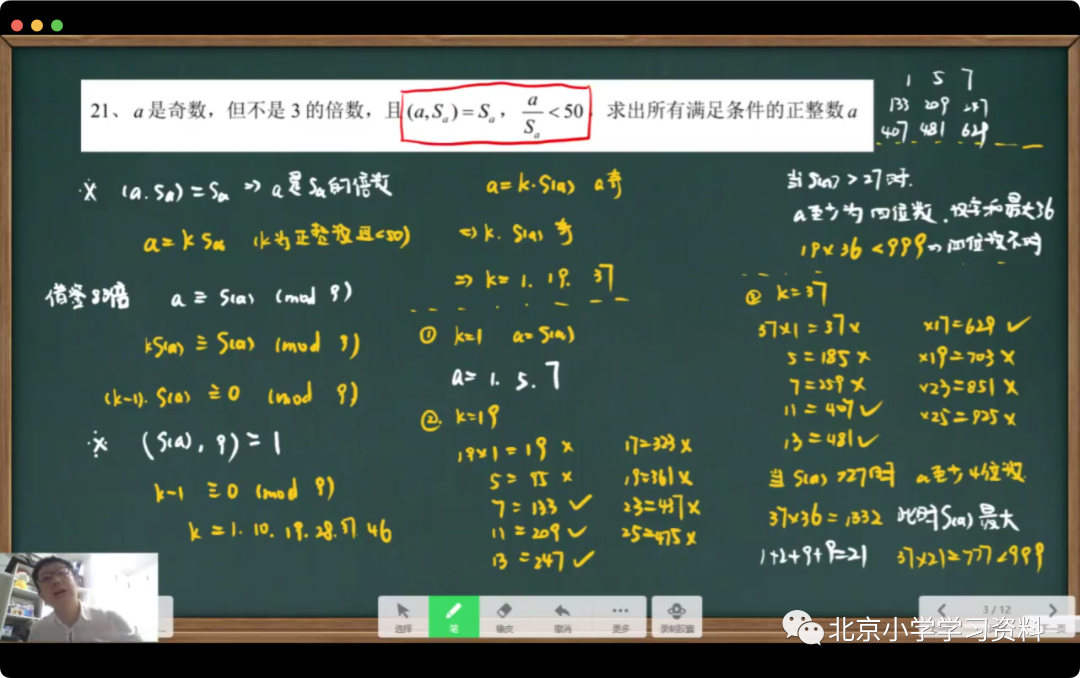 21、a 是奇数，但不是 3 的倍数，且 (a,Sₐ)=Sₐ，a/Sₐ<50，求出所有满足条件的正整数 a
1 5 7
133 209 247
407 481 629
※ (a.Sa)=Sa ⇒ a是Sa的倍数
a=k Sa (k为正整数且<50)
a ≡ S(a) (mod 9)
kS(a) ≡ S(a) (mod 9)
(k-1). S(a) ≡ 0 (mod 9)
※ (S(a), 9)=1
k-1 ≡ 0 (mod 9)
k=1. 10. 19. 28. 37. 46
a=k.S(a) a奇
⇒ k. S(a) 奇
⇒ k=1. 19. 37
① k=1 a=S(a)
a=1. 5. 7
②. k=19
19×1=19 × 17=323 ×
5=95 × 19=361 ×
7=133 ✓ 23=437 ×
11=209 ✓ 25=475 ×
13=247 ✓
当 S(a) >27时.
a至少为四位数, 数字和最大36
19×36 <999 ⇒ 四位数不对
② k=37
37×1=37 × ×17=629 ✓
5=185 × ×19=703 ×
7=259 × ×23=851 ×
11=407 ✓ ×25=925 ×
13=481 ✓
当 S(a) >27时 a至少4位数
37×36=1332 此时S(a)最大
1+2+9+9=21 37×21=777<999
选择
笔
橡皮
撤消
更多
3/12
下一页
北京小学学习资料